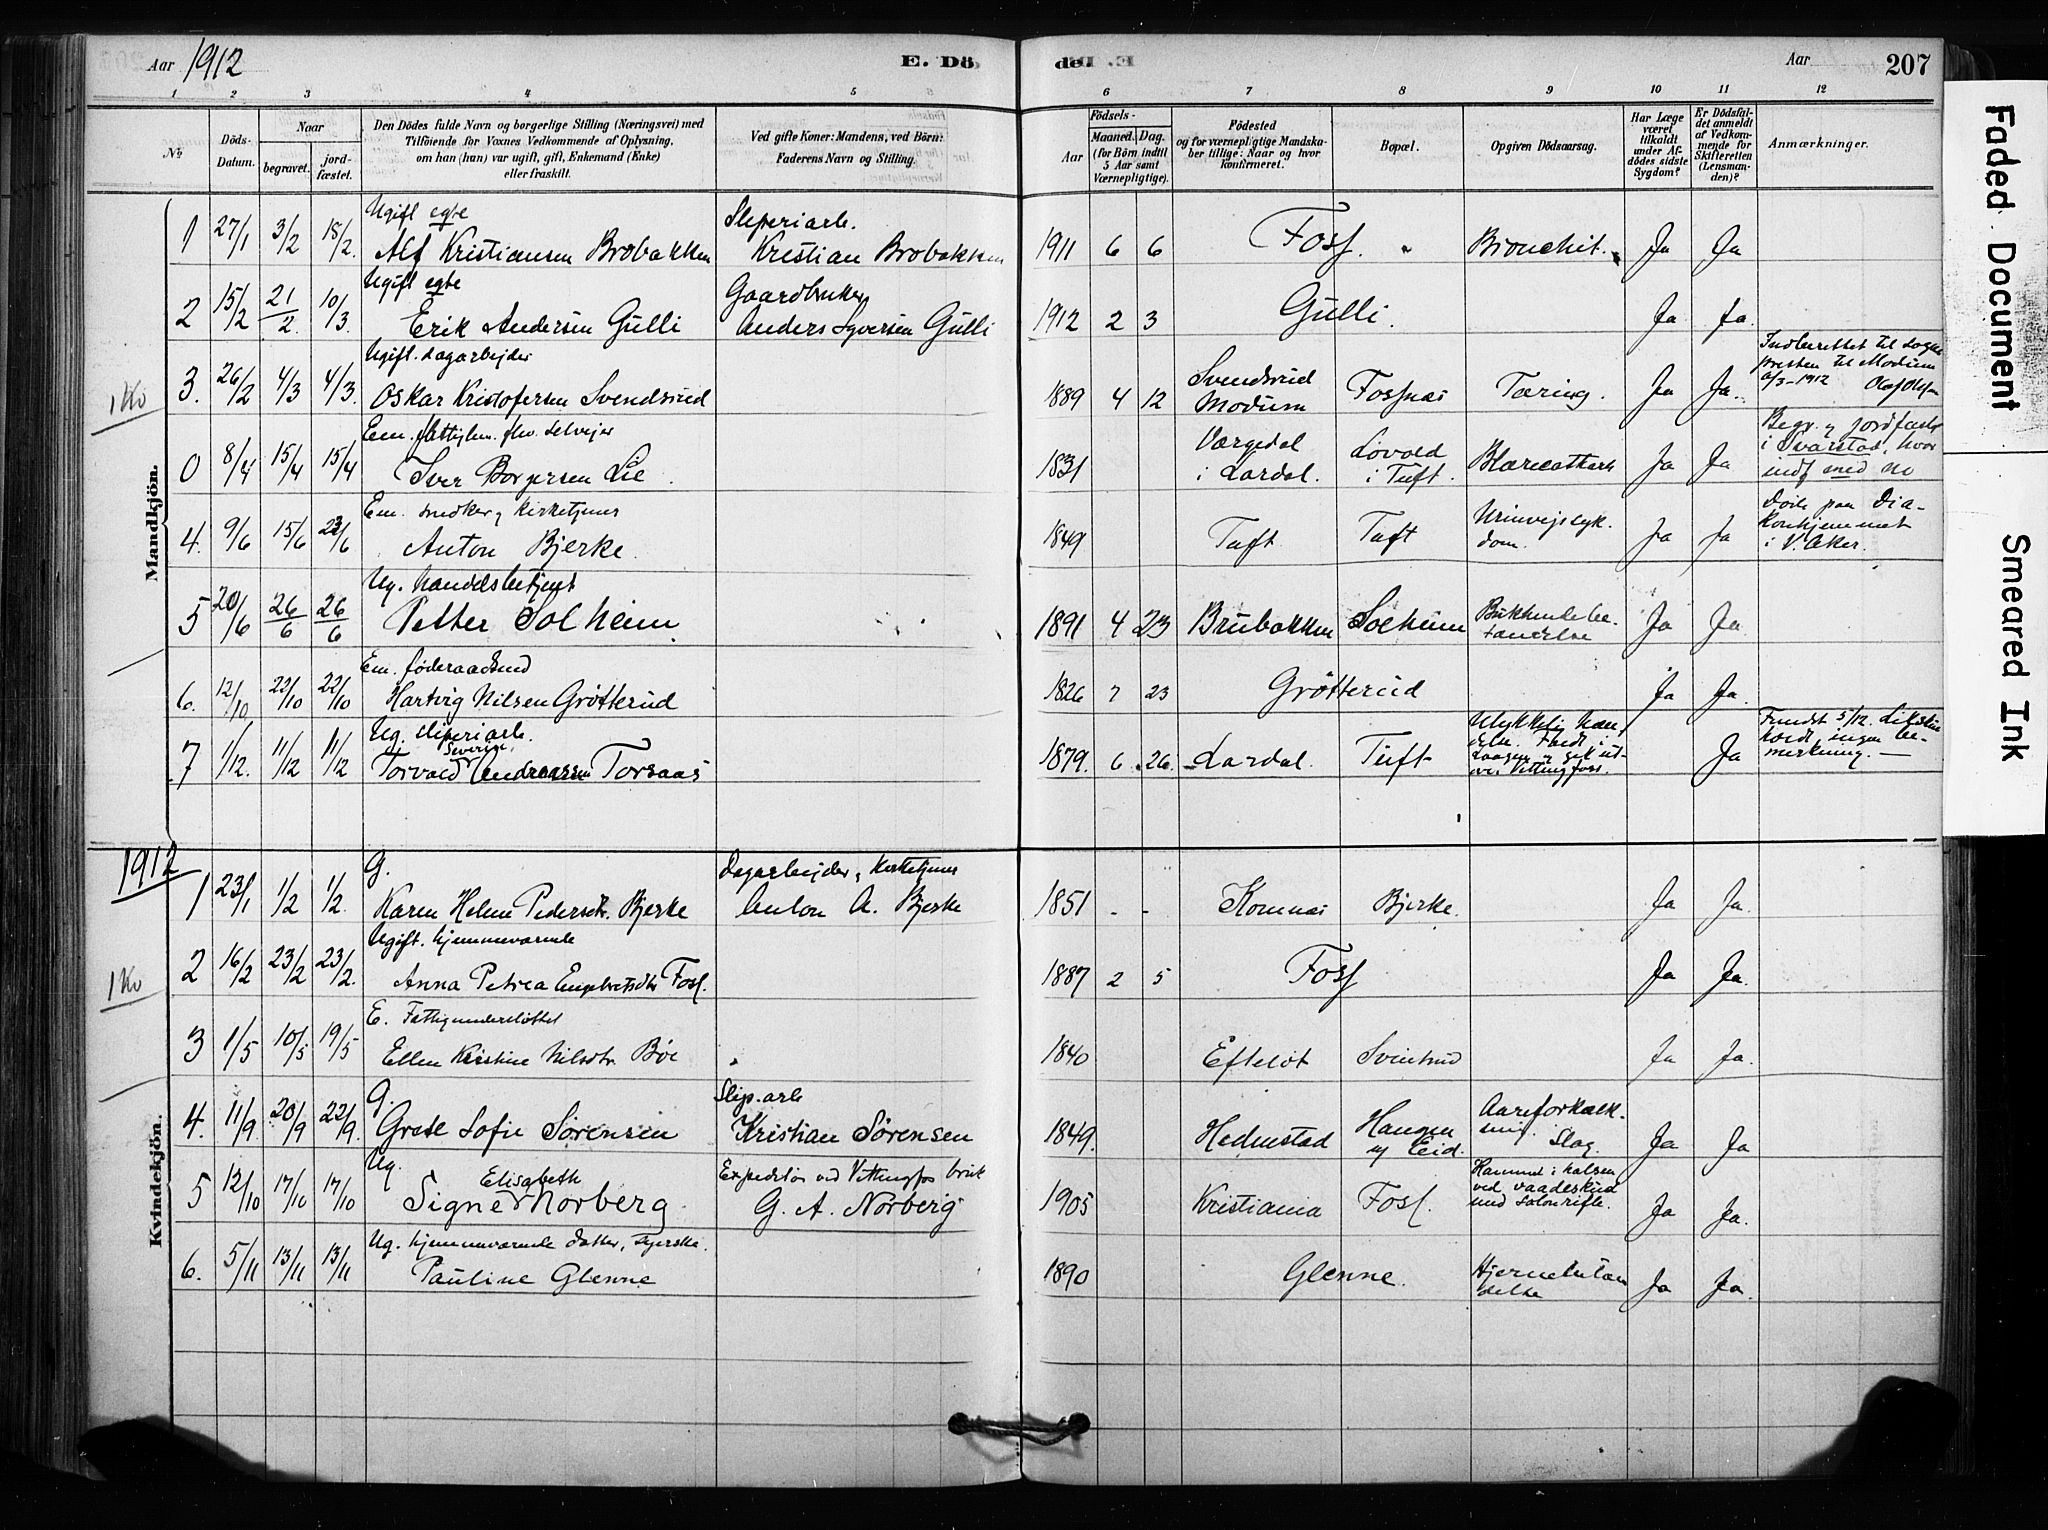 Aar 1912 E. Dö
de. Aar 207
1 2 3 4 5 6 7 8 9 10 11 12
№ Döds-Datum. Naar begravet. jord-fæstet.
Den Dödes fulde Navn og borgerlige Stilling (Næringsvei) med
Tilföiende for Voxnes Vedkommende af Oplysning,
om han (hun) var ugift, gift, Enkemand (Enke)
eller fraskilt.
Ved gifte Koner: Mandens, ved Börn:
Faderens Navn og Stilling.
Födsels-
Aar Maaned. Dag.
(for Börn indtil
5 Aar samt
Værnepligtige).
Födested
og for værnepligtige Mandska-
ber tillige: Naar og hvor
konfirmeret.
Bopæl.
Opgiven Dödsaarsag.
Har Læge
været
tilkaldt
under Af-
dödes sidste
Sygdom?
Er Dödsfal-
det anmeldt
af Vedkom-
mende for
Skifteretten
(Lensman-
den)?
Anmærkninger.
Mandkjön.
Ugift egte Sliperiarb.
1 27/1 3/2 18/2. Alf Kristiansen Brobakken Kristian Brobakken 1911 6 6 Foss. Bronchit. Ja Ja
Ugift egte Gaardbruker
2 15/2 21/2. 10/3. Erik Andersen Gulli Anders Syversen Gulli 1912 2 3 Gulli. Ja Ja.
Ugift. dagarbejder
1 Ko
3. 26/2 4/3 4/3. Oskar Kristofersen Svendsrud 1889 4 12 Svendsrud Modum Fossnæs Tæring. Ja Ja.
Indberettet til sogne
presten til Modum
6/3-1912 Olaf Olsen
Em. fattiglem. fhv. selveier
0 8/4 15/4 15/4 Iver Borgersen Lie. 1831 Værgedal i Lardal. Løvold i Tuft. Blærecatharh Ja Ja
Begr. og jordfæstet
i Svarstad, hvor
indf med no
Em. snedker og kirketjener
4. 9/6 15/6 23/6 Anton Bjerke. 1849 Tuft Tuft Urinvejslyk-
dom. Ja Ja
Døde paa Dia-
konhjemmet
i V. Aker.
Ug. handelsbetjent
5 20/6 26/6 26/6 Petter Solheim. 1891 4 23 Brubakken Solheim Bukhindebe-
tændelse Ja Ja
Em. føderaadsmd
6. 12/10. 22/10 22/10 Hartvig Nilsen Grøtterud 1826 7 23 Grøtterud Ja Ja.
Ug. sliperiarb.
7 1/12. 11/12 11/12 Torvald Severin Andreassen Torsaas 1879. 6. 26. Lardal. Tuft
Ulykkelig hæn-
delse. Faldt i
Laagen og gik ut-
over Vittingfoss.
Ja
Fundet 5/12. Likskue
holdt, ingen be-
merkning. —
1912
Kvindekjön.
G. Dagarbejder, kirketjener
1 23/1 1/2 1/2. Karen Helene Pedersdtr. Bjerke Anton A. Bjerke 1851 - - Komnæs Bjerke. Ja Ja.
Ugift. hjemmeværende
1 Ko
2 16/2 23/2 23/2. Anna Petrea Engebretsdtr Foss. 1887 2 5 Foss Ja Ja.
E. Fattigunderstøttet
3 1/5 10/5 19/5 Ellen Kristine Nilsdtr. Bøe 1840 Efteløt Svinsrud Ja Ja.
G. Slip.arb
4. 11/9 20/9 22/9. Grete Sofie Sørensen Kristian Sørensen 1849. Hedenstad Haugen u/ Eid. Aareforkalk-
ning. Slag. Ja Ja
Ug. Expeditør ved Vittingfos bruk
5 12/10 17/10 17/10 Signe Elisabeth Norberg G. A. Norberg 1905 Kristiania Foss.
Rammet i halsen
ved vaadeskud
med salonrifle. Ja Ja.
Ug. hjemmeværende datter, syerske.
6. 5/11 13/11 13/11 Pauline Glenne 1890 Glenne. Hjernebetæn
delse Ja Ja.
Faded Document
Smeared Ink